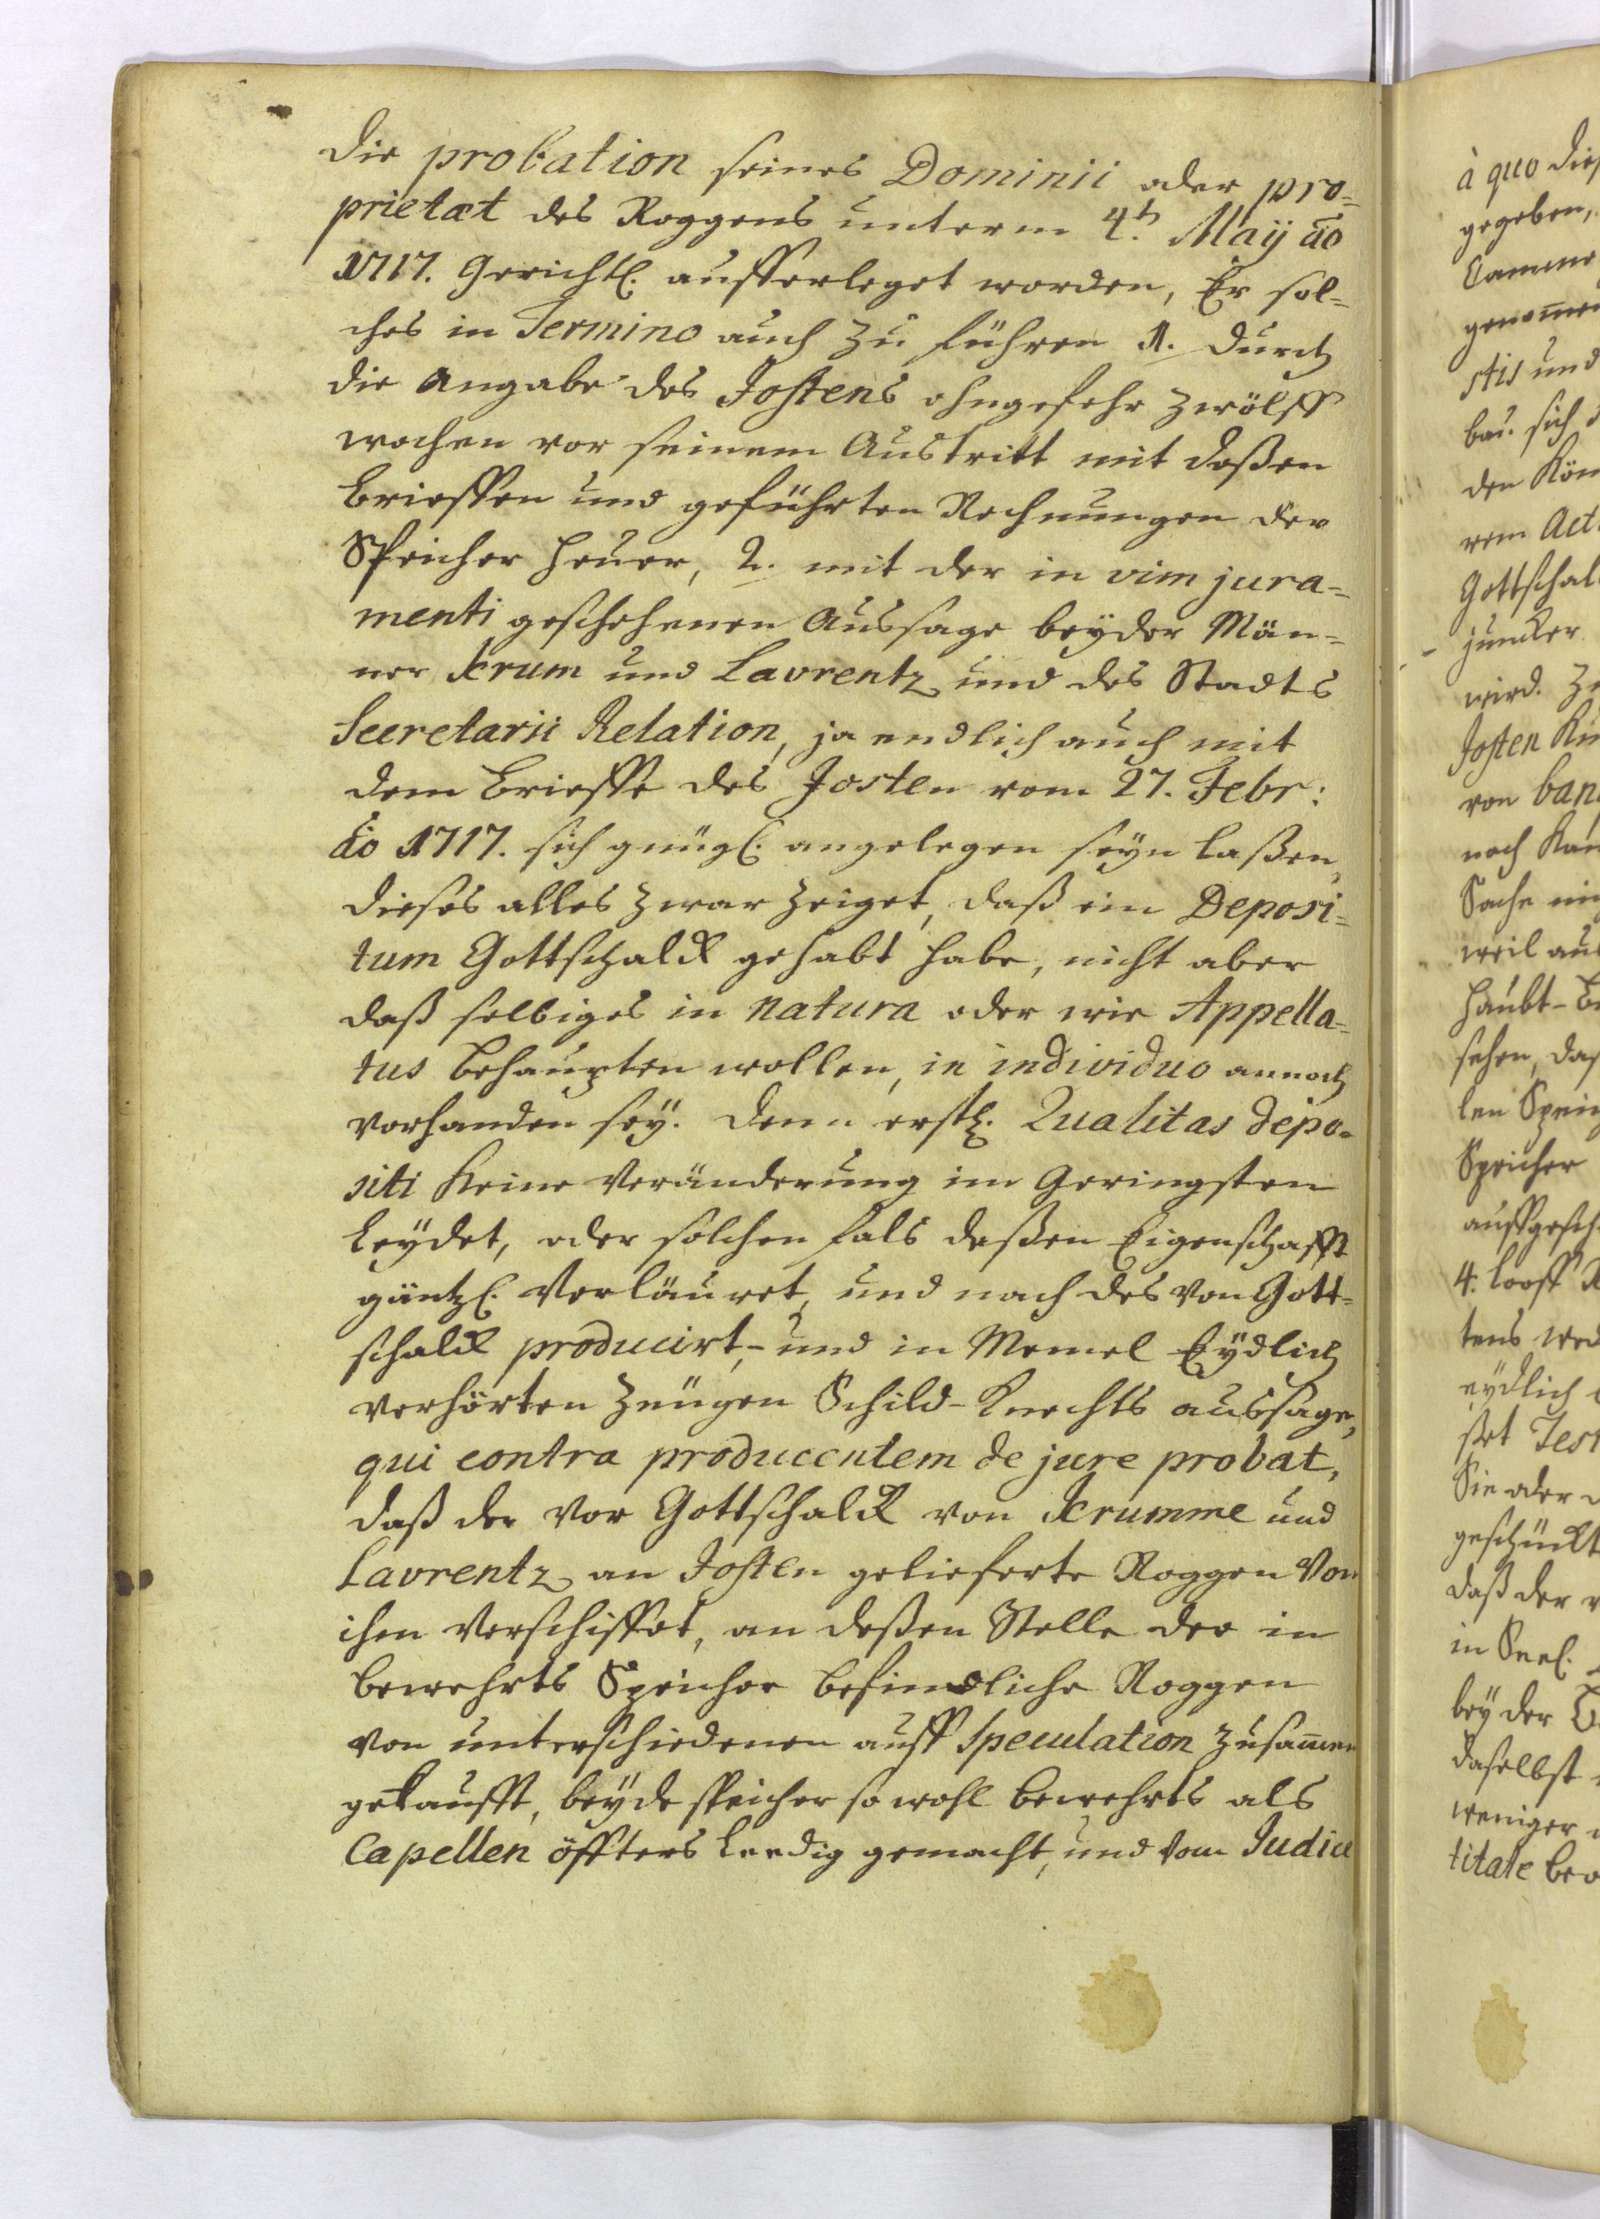 die probation seines Dominii oder pro=
prietæt des Roggens unterm 4t. Maij ão
1717. Gerichtl. aufferleget worden, Er sol=
ches in Termino auch zu führen 1. durch
die Angabe des Jostens ohngefehr zwölff
wochen vor seinem Austritt mit deßen
Brieffen und geführten Rechnungen der
Speicher Heuer, 2. mit der in vim jura=
menti geschehenen Aussage beyder Män=
ner Krum und Lavrentz und des Stadts
Secretarii Relation, ja endlich auch mit
dem Brieffe des Josten vom 27. Febr:
ão 1717. sich gnügl. angelegen seyn laßen,
dieses alles zwar zeiget, daß ein Deposi=
tum Gottschalck gehabt habe, nicht aber
daß selbiges in natura oder wie Appella=
tus behaupten wollen, in individuo annoch
vorhanden sey. Denn erstl. Qualitas depo=
siti keine Veränderung im Geringsten
Leydet, oder solchen fals deßen Eigenschafft
gäntzl. Verläuret, und nach des von Gott=
schalck producirt,- und in Memel Eydlich
verhörten Zeugen Schild-Knechts aussage,
qui contra producentem de jure probat,
daß der vor Gottschalck von Krumme und
Lavrentz an Josten gelieferte Roggen Von
ihm Verschiffet, an deßen Stelle der in
Bewehrts Speicher befindliche Roggen
von unterschiedenen auff Speculation zusam̃en
gekaufft, beyde speicher so wohl bewehrts als
Capellen öffters Leedig gemacht, und vom Judice
à quo
gegeben,
stis und
bau. sich
rem Act
juncker
wird.
Josten
von
noch
Sache
weil
Haubt-
sehen,
Speicher
4. looff
tens
eydlich
Sie oder
daß der
in Seel.
bey der
daselbst
weniger
titate